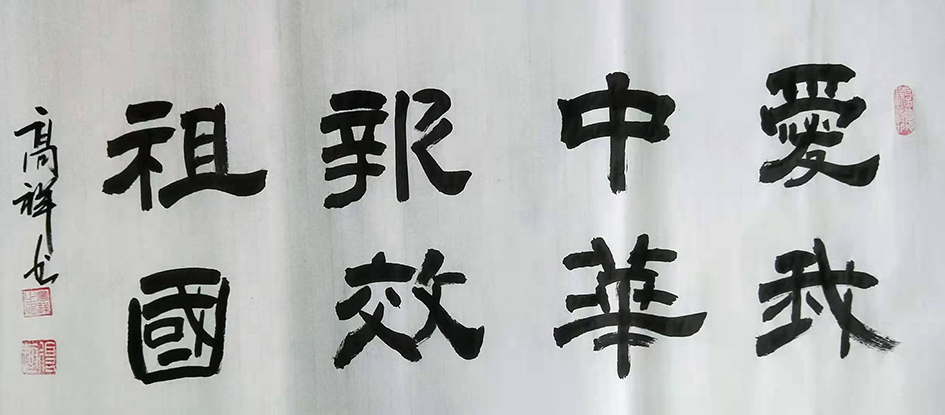 愛我
中華
報效
祖國
高祥书